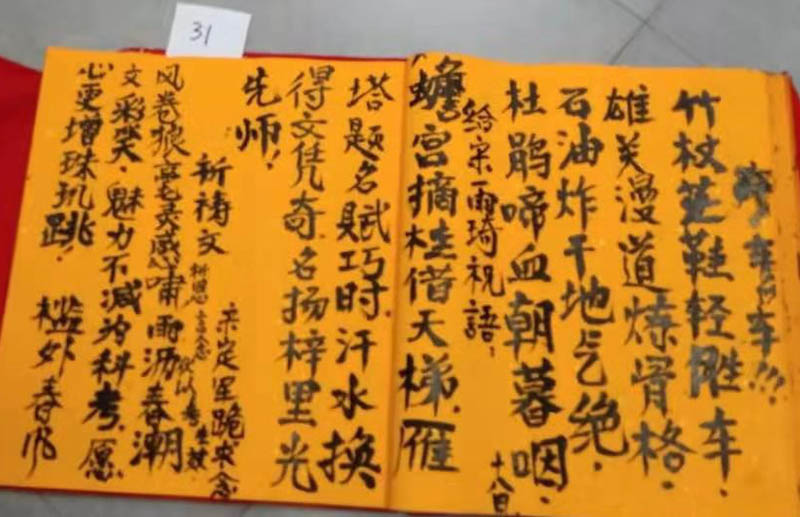 竹杖芒鞋轻胜车.
雄关漫道炼骨格.
石油炸干地气绝.
杜鹃啼血朝暮咽.
十八日
给宋雨琦祝語,
蟾宫摘桂借天梯.雁
塔题名赋巧时.汗水换
得文凭奇名扬梓里光
先师!
祈祷文
定星跪求念
风卷狼毫灵感啸雨沥春潮
文彩笑.魅力不减为科考.愿
心更增珠玑跳!
槛外春
31